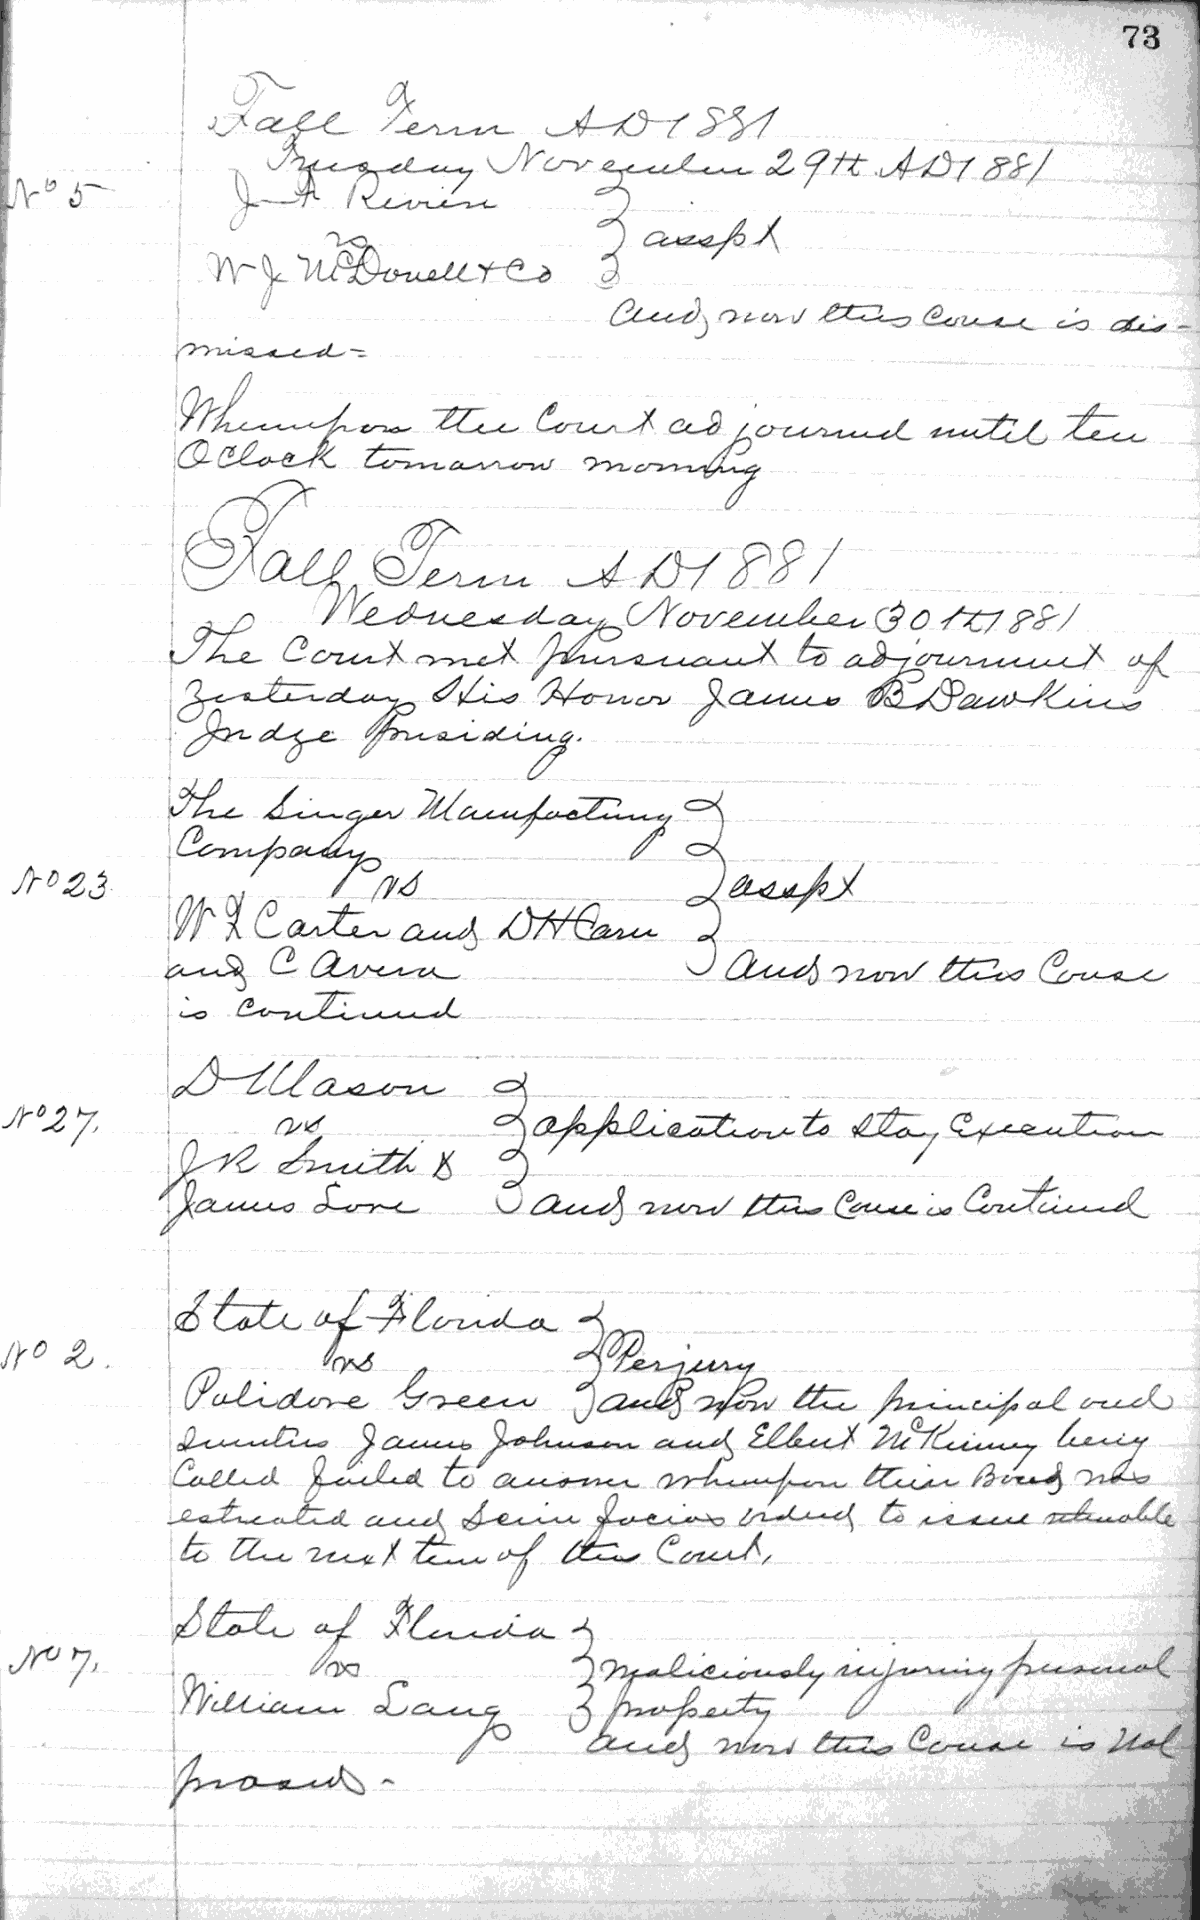 73
Fall Term AD 1881
Tuesday November 29th AD 1881
No 5 J A Rivien
vs } asspt
W J McDonell & Co
and now this Couse is dis-
missed =
Whereupon the Court adjourned until ten
Oclock tomarrow morning
Fall Term AD 1881
Wednesday November 30th 1881
The Court met pursuant to adjournment of
yesterday His Honor James B Dawkins
Judge Presiding.
The Singer Manufacturing
Company
No 23 vs } asspt
W F Carter and D H Carn
and C Avera and now this Couse
is continued
D Mason
No 27. vs } application to Stay Execution
J R Smith &
James Love and now this Couse is Continued
State of Florida
No 2. vs } Perjury
Polidore Green and now the principal and
sureties James Johnson and Elbert McKinney being
Called failed to answer whereupon their Bond was
estreated and Scire facias ordered to issue returnable
to the next term of this Court,
State of Florida
No 7. vs } maliciously injuring personal
William Lang property
and now this Couse is Nol
prossed -